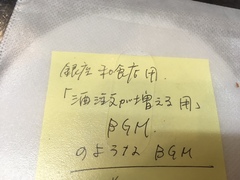 銀座 和食店用.
「酒注文が増える用」
BGM.
のような BGM